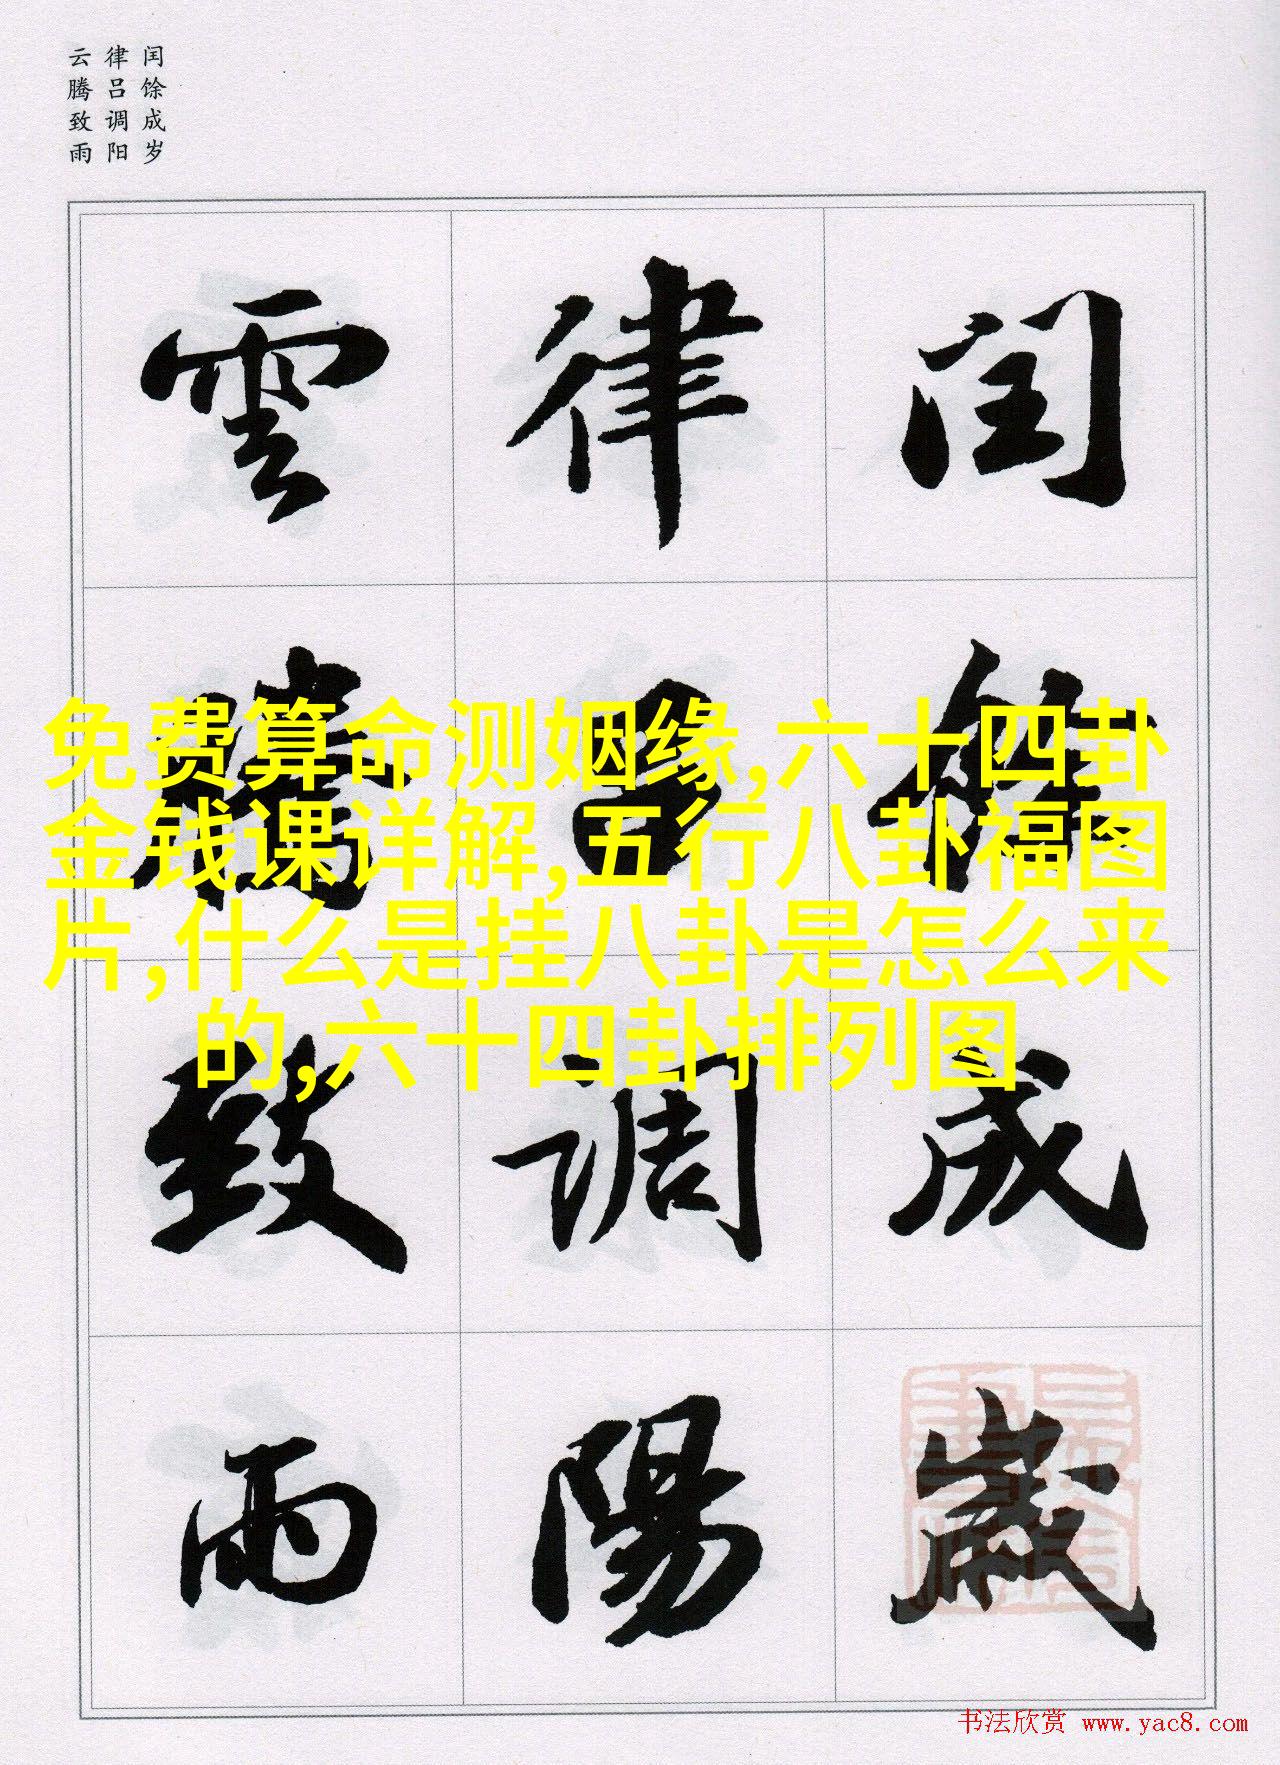 闰馀成岁
律吕调阳
云腾致雨
闰馀成歲
律吕調陽
雲騰致雨
免费算命测姻缘,六十四卦
金钱课详解,五行八卦福图
片,什么是挂八卦是怎么来
的,六十四卦排列图
书法欣赏 www.yac8.com